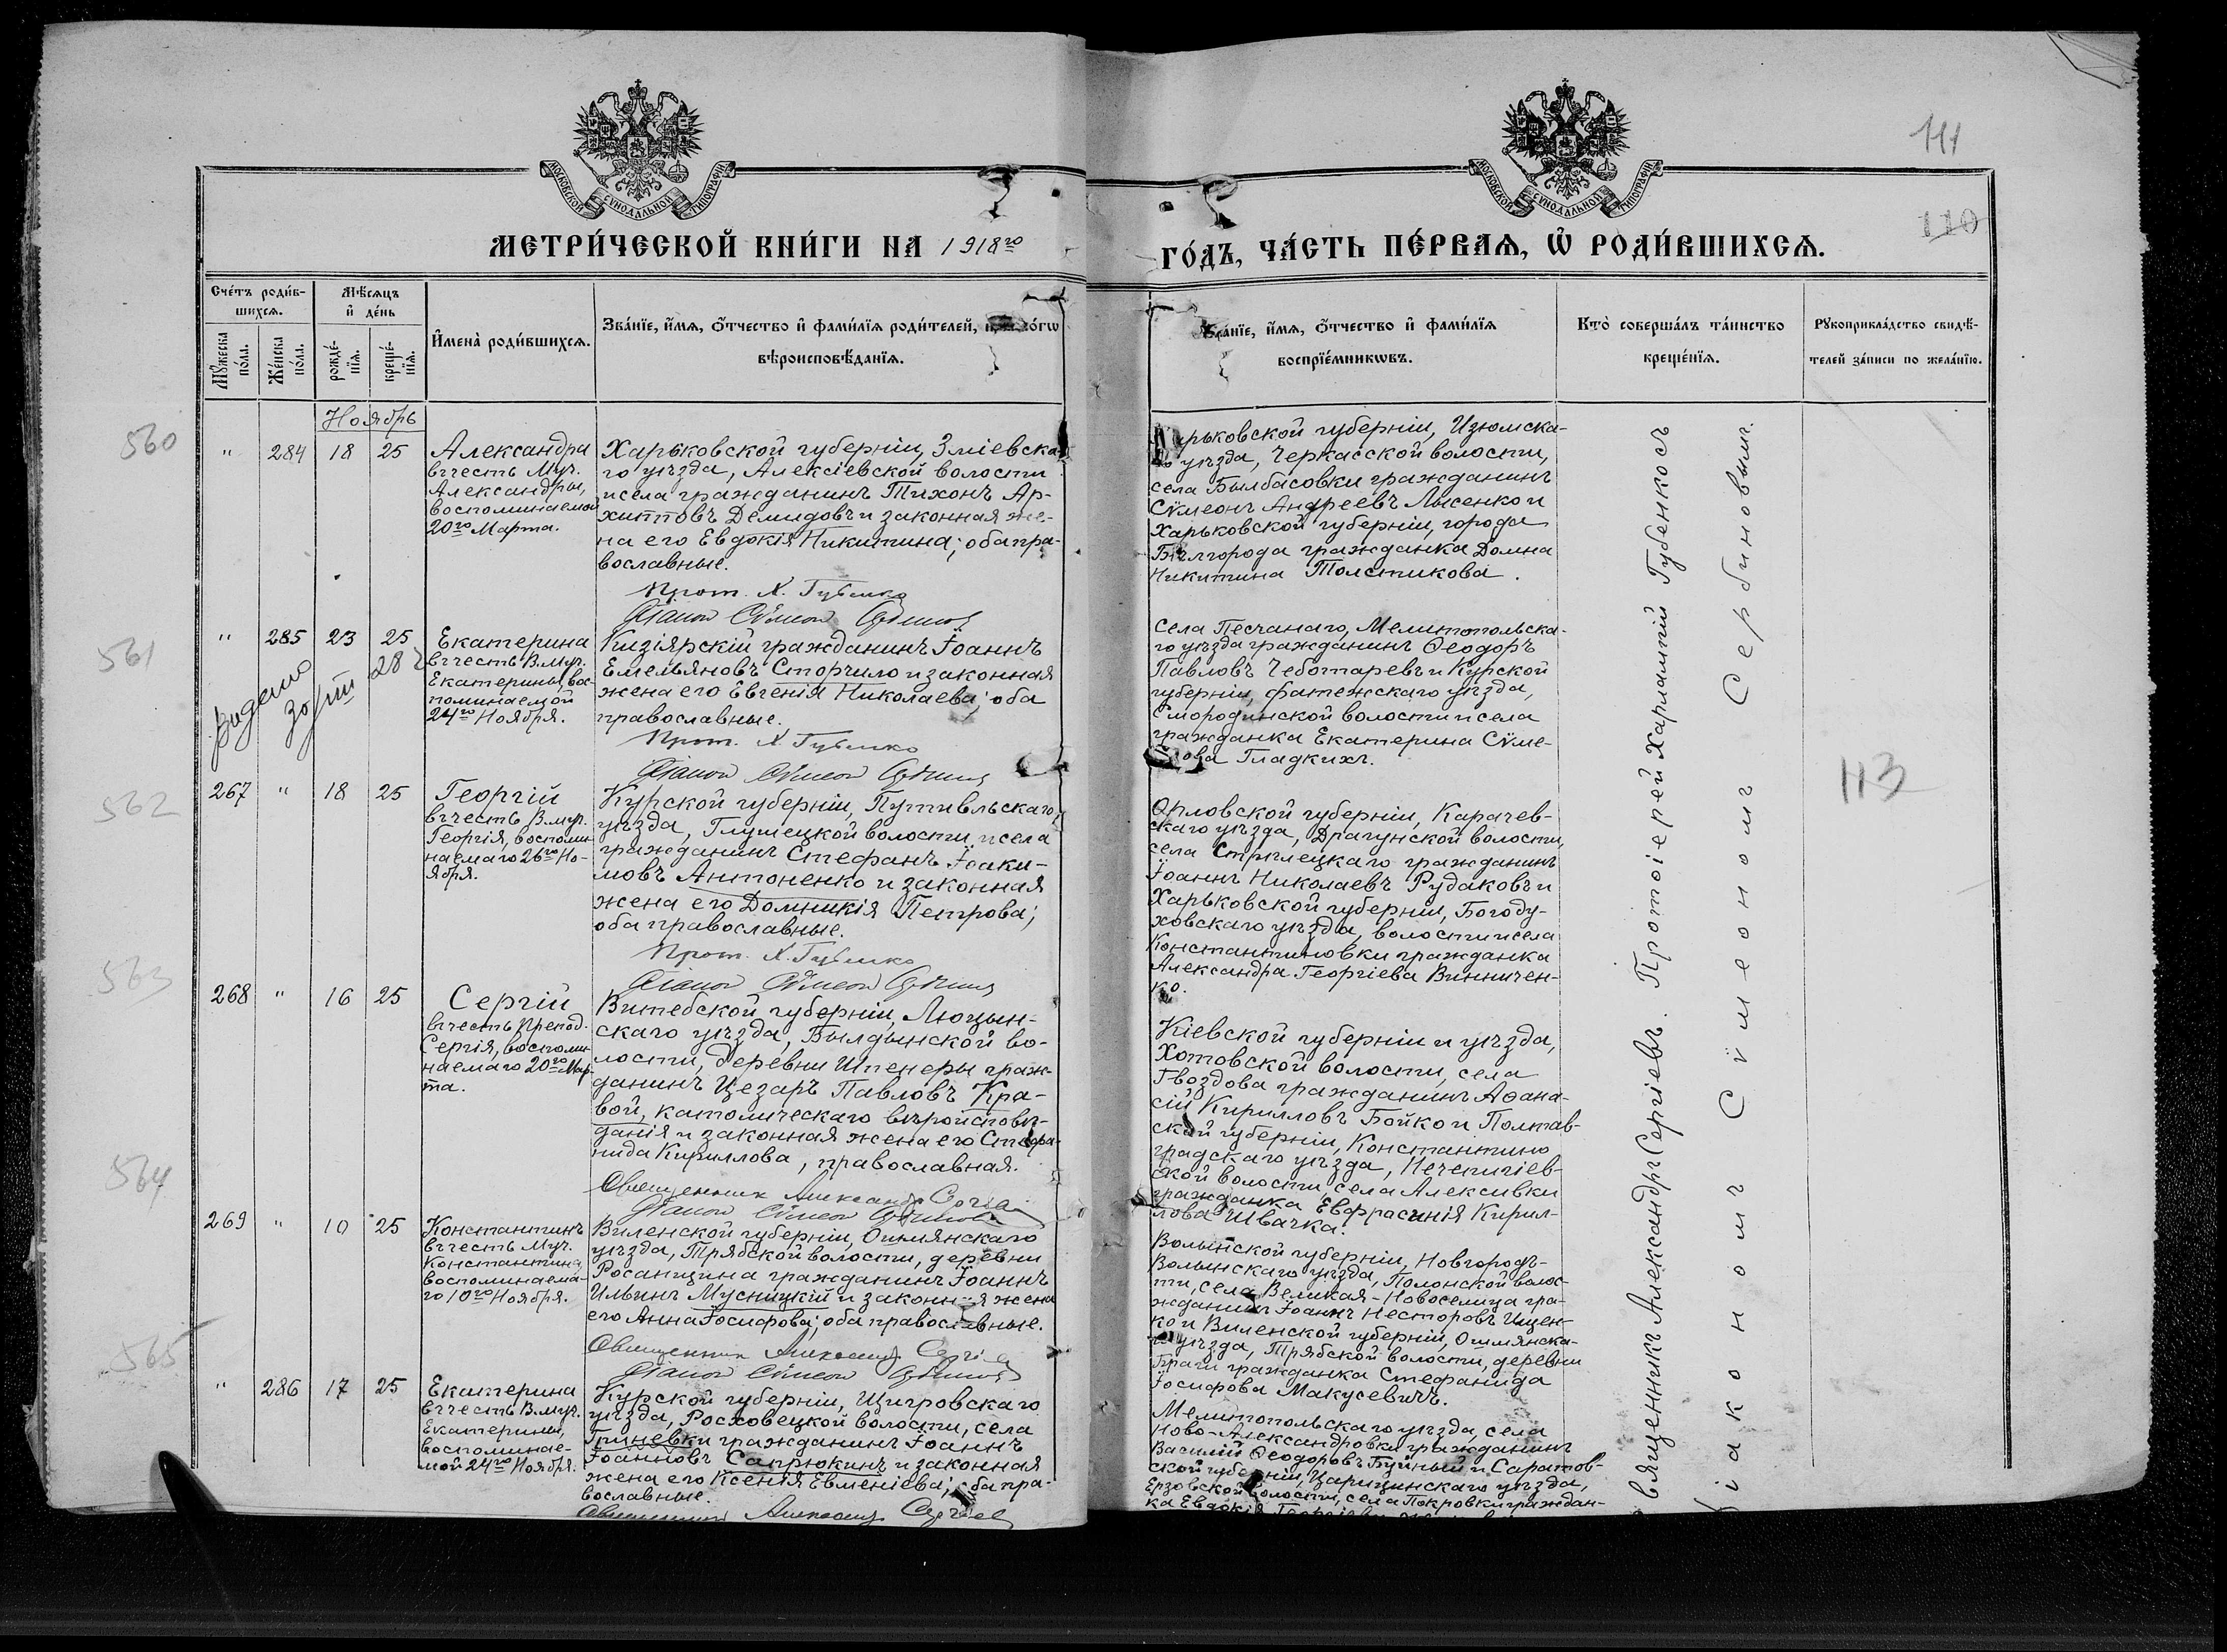 111
110
МОСКОВСКОЙ СѴНОДАЛЬНОЙ ТИПОГРАФІИ
МОСКОВСКОЙ СѴНОДАЛЬНОЙ ТИПОГРАФІИ
МЕТРИ́ЧЕСКОЙ КНИ́ГИ НА 1918го
ГО́ДЪ, ЧА́СТЬ ПЕ́РВАЯ, Ѡ҆ РОДИ́ВШИХСѦ.
Сче́тъ роди́в-
шихсѧ.
Мꙋ́жеска по́ла.
Же́нска по́ла.
Мѣ́сѧцъ
и҆ де́нь
рожде́-
нїѧ.
креще́-
нїѧ.
И҆мена̀ роди́вшихсѧ.
Зва́нїе, и҆́мѧ, ѻ҆́тчество и҆ фами́лїѧ роди́телей,
вѣроисповѣ́данїѧ.
Зва́нїе, и҆́мѧ, ѻ҆́тчество и҆ фами́лїѧ
воспрїе́мникѡвъ.
Кто̀ соверша́лъ та́инство
креще́нїѧ.
Рꙋкоприкла́дство свидѣ́-
телей за́писи по жела́нїю.
Ноябрь
560
" 284 18 25
Александра
въ честь Муч.
Александры,
воспоминаемой
20го Марта.
Харьковской губерніи, Зміевска-
го уѣзда, Алексіевской волости
и села гражданинъ Тихонъ Ар-
хипповъ Демидовъ и законная же-
на его Евдокія Никитина; оба пра-
вославные.
Прот. Х. Губенко
Діаконъ Сѷмеонъ
Харьковской губерніи, Изюмска-
го уѣзда, Черкасской волости,
села Былбасовки гражданинъ
Сѷмеонъ Андреевъ Лысенко и
Харьковской губерніи, города
Бѣлгорода гражданка Домна
Никитина Толстикова.
561
" 285 23 25
28
Екатерина
въ честь В.муч.
Екатерины, вос-
поминаемой
24го Ноября.
Кизіярскій гражданинъ Іоаннъ
Емельяновъ Сторчило и законная
жена его Евгенія Николаева; оба
православные.
Прот. Х. Губенко
Діаконъ Сѷмеонъ
села Песчанаго, Мелитопольска-
го уѣзда гражданинъ Ѳеодоръ
Павловъ Чеботаревъ и Курской
губерніи, Фатежскаго уѣзда,
Смородинской волости и села
гражданка Екатерина Сѷме-
онова Гладкихъ.
562
267 " 18 25
Георгій
въ честь В.муч.
Георгія, воспоми-
наемаго 26го Но-
ября.
Курской губерніи, Путивльскаго
уѣзда, Глушецкой волости и села
гражданинъ Стефанъ Іоаки-
мовъ Антоненко и законная
жена его Домникія Петрова;
оба православные.
Прот. Х. Губенко
Діаконъ Сѷмеонъ
Орловской губерніи, Карачев-
скаго уѣзда, Драгунской волости,
села Стрѣлецкаго гражданинъ
Іоаннъ Николаевъ Рудаковъ и
Харьковской губерніи, Богоду-
ховскаго уѣзда, волости и села
Константиновки гражданка
Александра Георгіева Винничен-
ко.
113
563
268 " 16 25
Сергій
въ честь Препод.
Сергія, воспоми-
наемаго 20го Мар-
та.
Витебской губерніи, Люцын-
скаго уѣзда, Былдынской во-
лости, деревни Шпенеры граж-
данинъ Цезаръ Павловъ Кра-
вой, католическаго вѣроисповѣ-
данія и законная жена его Стефа-
нида Кириллова, православная.
Священникъ Александръ Сергіевъ
Діаконъ Сѷмеонъ
Кіевской губерніи и уѣзда,
Хотовской волости, села
Гвоздова гражданинъ Аѳана-
сій Кирилловъ Бойко и Полтав-
ской губерніи, Константино
градскаго уѣзда,
ской волости, села Алексѣвки
гражданка Евфрасинія Кирил-
лова Швачка.
564
269 " 10 25
Константинъ
въ честь Муч.
Константина,
воспоминаема-
го 10го Ноября.
Виленской губерніи, Ошмянскаго
уѣзда, Трябской волости, деревни
Росанщина гражданинъ Іоаннъ
Ильинъ Мусницкій и законная жена
его Анна Іосифова; оба православные.
Священникъ Александръ Сергіевъ
Діаконъ Сѷмеонъ
Волынской губерніи, Новгородъ-
Волынскаго уѣзда, Полонской волос-
ти, села Великая-Новоселица гра-
жданинъ Іоаннъ Несторовъ Ищен-
ко и Виленской губерніи, Ошмянска-
го уѣзда, Трябской волости, деревни
Браги гражданка Стефанида
Іосифова Макусевичъ.
565
" 286 17 25
Екатерина
въ честь В.муч.
Екатерины,
воспоминае-
мой 24го Ноября.
Курской губерніи, Щигровскаго
уѣзда, Росховецкой волости, села
Гриневки гражданинъ Іоаннъ
Іоанновъ Сапрюкинъ и законная
жена его Ксенія Евменіева; оба пра-
вославные.
Священникъ Александръ Сергіевъ
Мелитопольскаго уѣзда, села
Ново-Александровки гражданинъ
Василій Ѳеодоровъ Буйный и Саратов-
ской губерніи, Царицинскаго уѣзда,
Ерзовской волости, села Покровки граждан-
ка Евдокія
Протоіерей Харлампій Губенко съ
вященникъ Александръ Сергіевъ.
Діакономъ Сѷмеономъ Сербиновымъ.